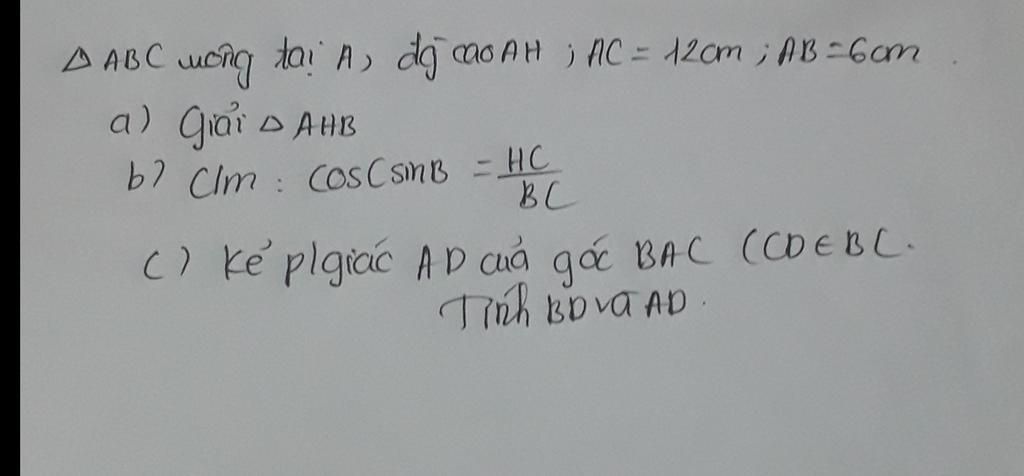 Δ ABC vuông tại A, đg cao AH ; AC = 12cm ; AB = 6cm .
a) Giải Δ AHB
b) C/m : cosC sinB = HC/BC
c) Kẻ p/giác AD của góc BAC (CD ∈ BC.
Tính BD và AD.